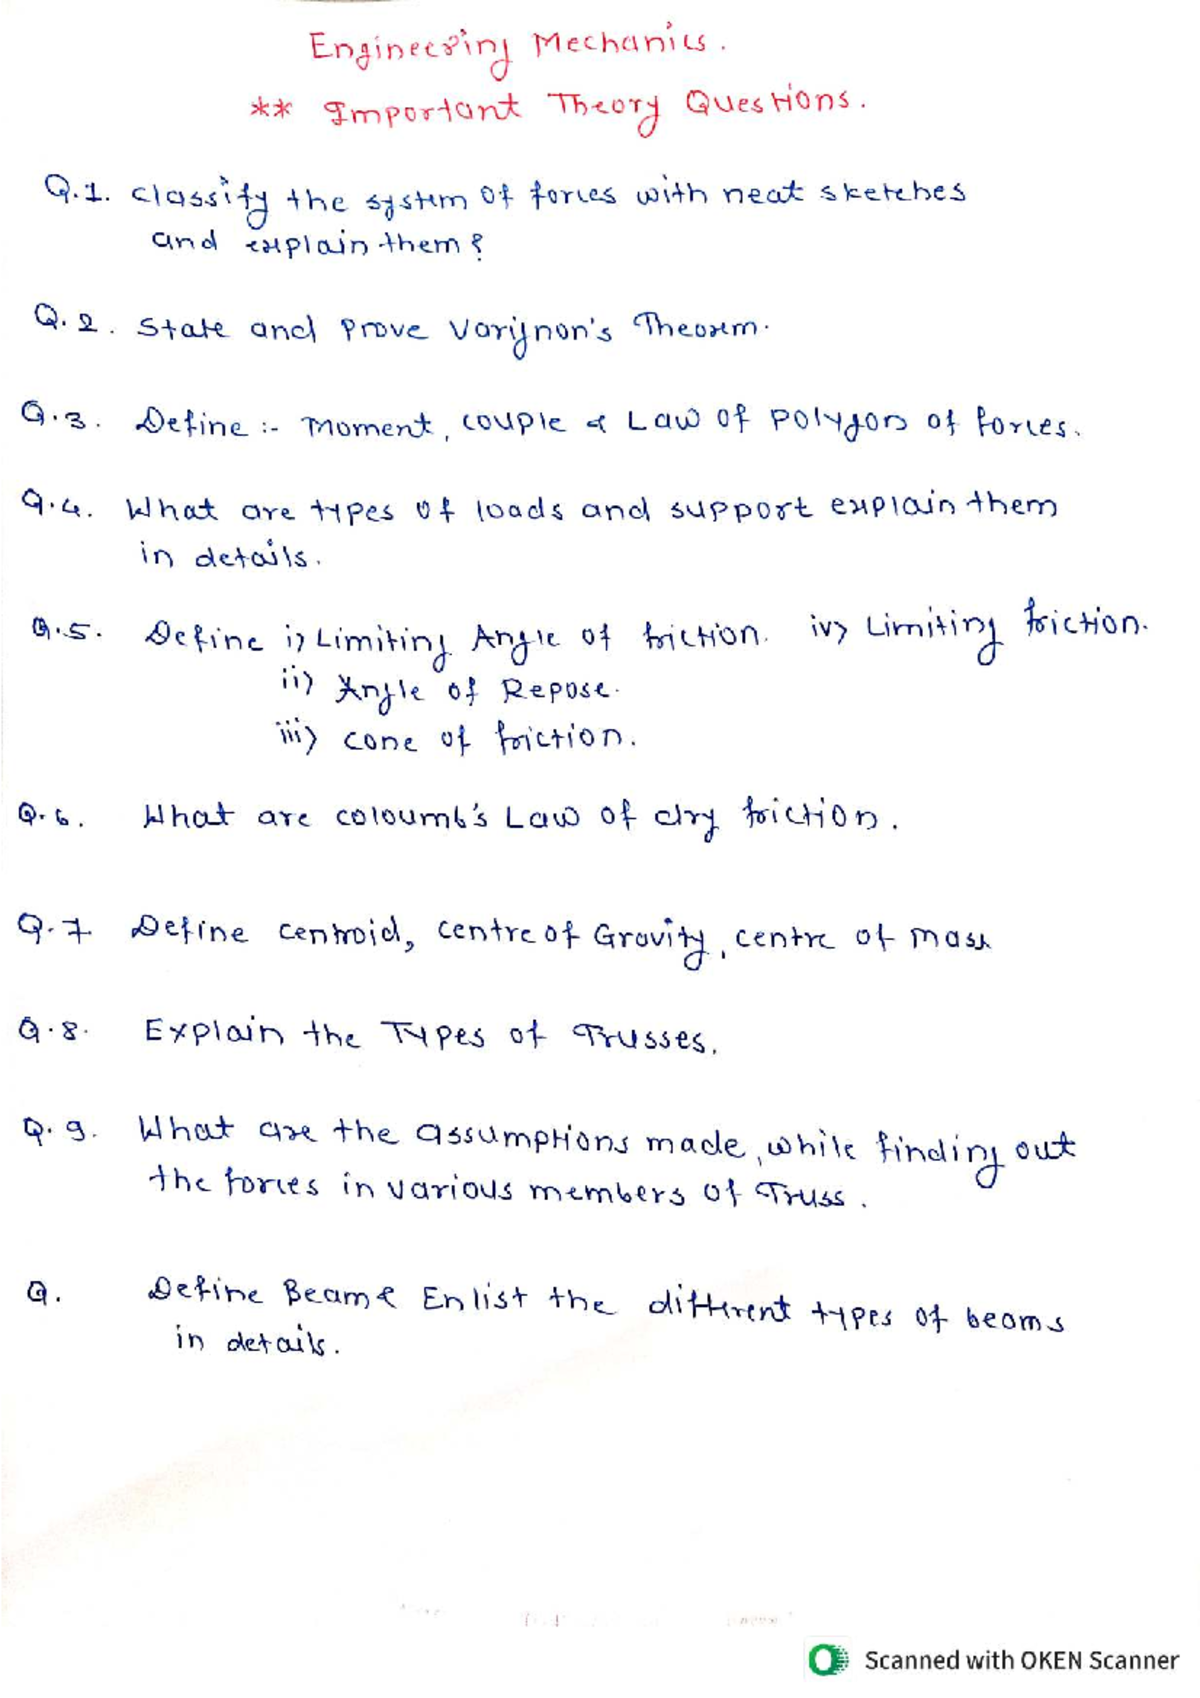 Engineering Mechanics.
** Important Theory Questions.
Q.1. Classify the system of forces with neat sketches
and explain them?
Q.2. State and Prove Varijnon's Theorem.
Q.3. Define :- Moment, couple & Law of Polygon of forces.
Q.4. What are types of loads and support explain them
in details.
Q.5. Define i) Limiting Angle of friction. iv) Limiting friction.
ii) Angle of Repose.
iii) cone of friction.
Q.6. What are coloumb's Law of dry friction.
Q.7 Define centroid, centre of Gravity, centre of mass
Q.8. Explain the Types of Trusses.
Q.9. What are the assumptions made, while finding out
the forces in various members of Truss.
Q. Define Beam & Enlist the different types of beams
in details.
Scanned with OKEN Scanner